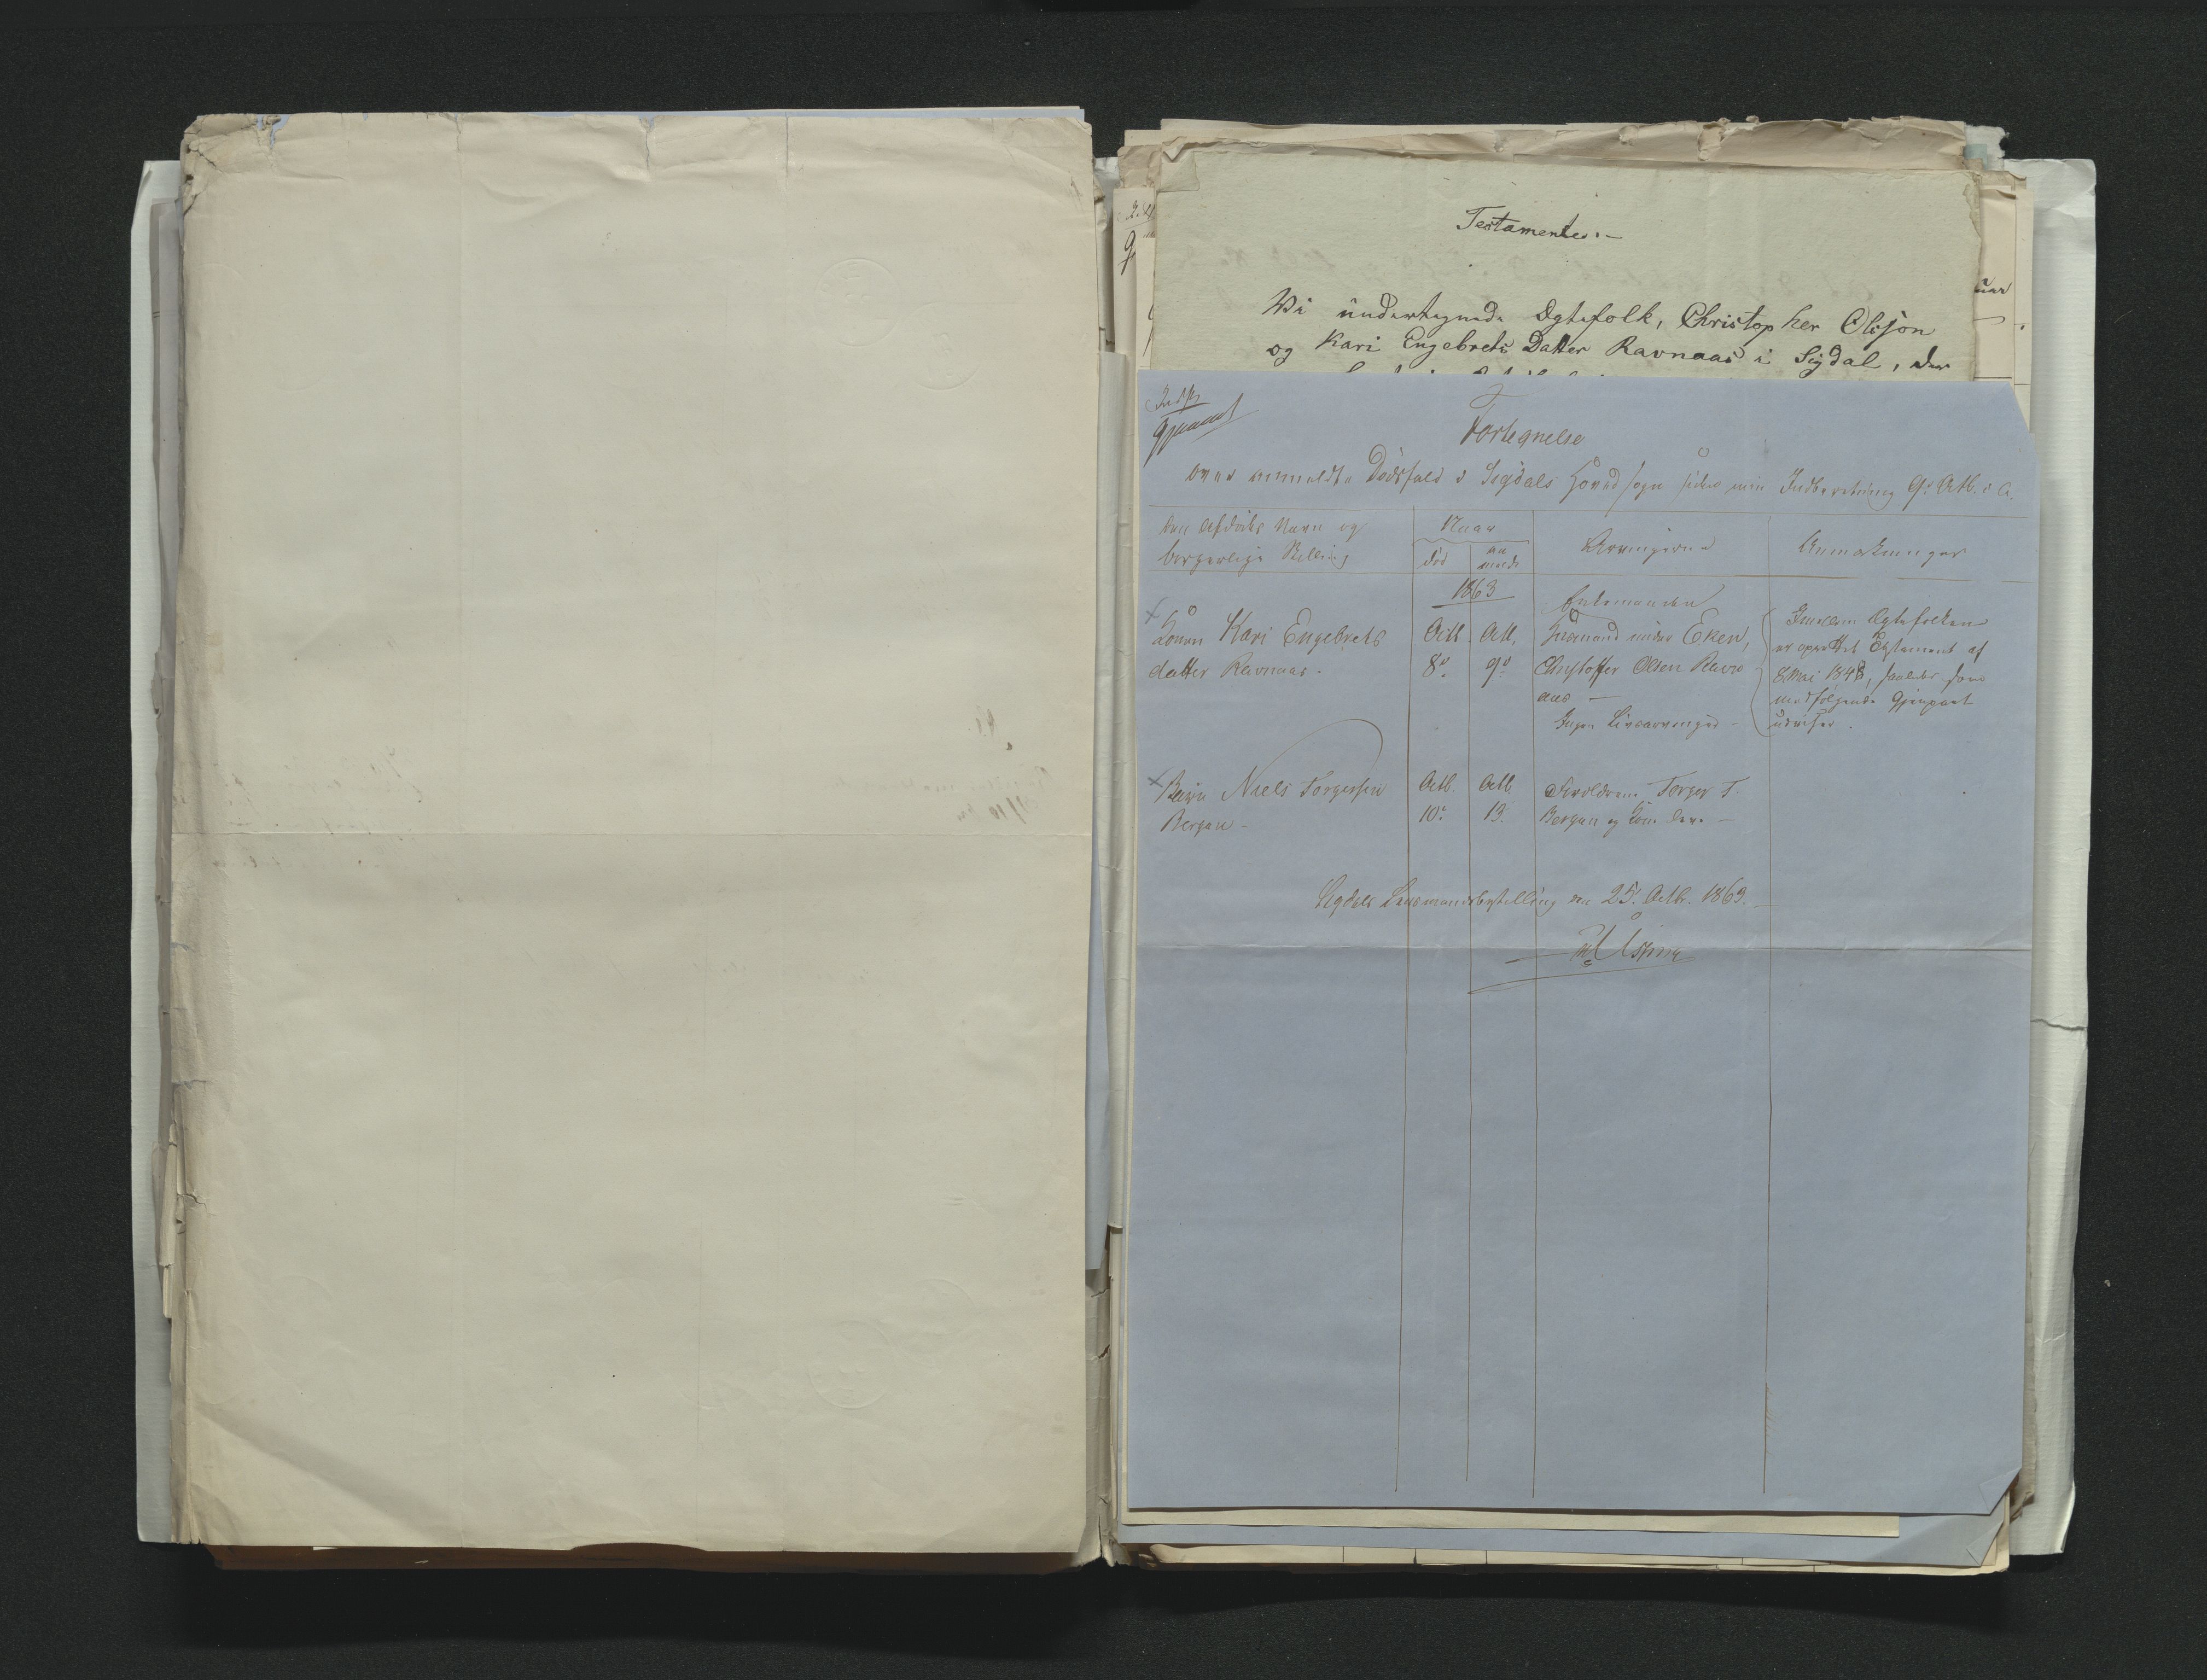 Testamente:—
Vi undertegnede Egtefolk, Christopher Olsøn
og Kari Engebrets Datter Ravnaas i Sigdal, der
Fortegnelse
over anmeldte Dødsfald i Sigdals Hovedsogn siden min Indberetning 9de Octb. d. A.
Den Afdødes Navn og
borgerlige Stilling
Naar
død
an
meldt
Arvingerne
Anmærkninger
1863
Konen Kari Engebrets
datter Ravnaas.
Octb. 8de
Octb. 9de
Enkemanden
Husmand under Eken,
Christoffer Olsen Ravn
aas —
Ingen Livsarvinger —
Imellem Ægtefolkene
er oprettet Testament af
8 Mai 1848, saaledes som
medfølgende Gjenpart
udviser.
Barn Niels Torgersen
Bergan —
Octb. 10de
Octb. 13.
Forældrene Torger T.
Bergan og Kone
Sigdals Lensmandsbestilling den 25. Octb. 1863.